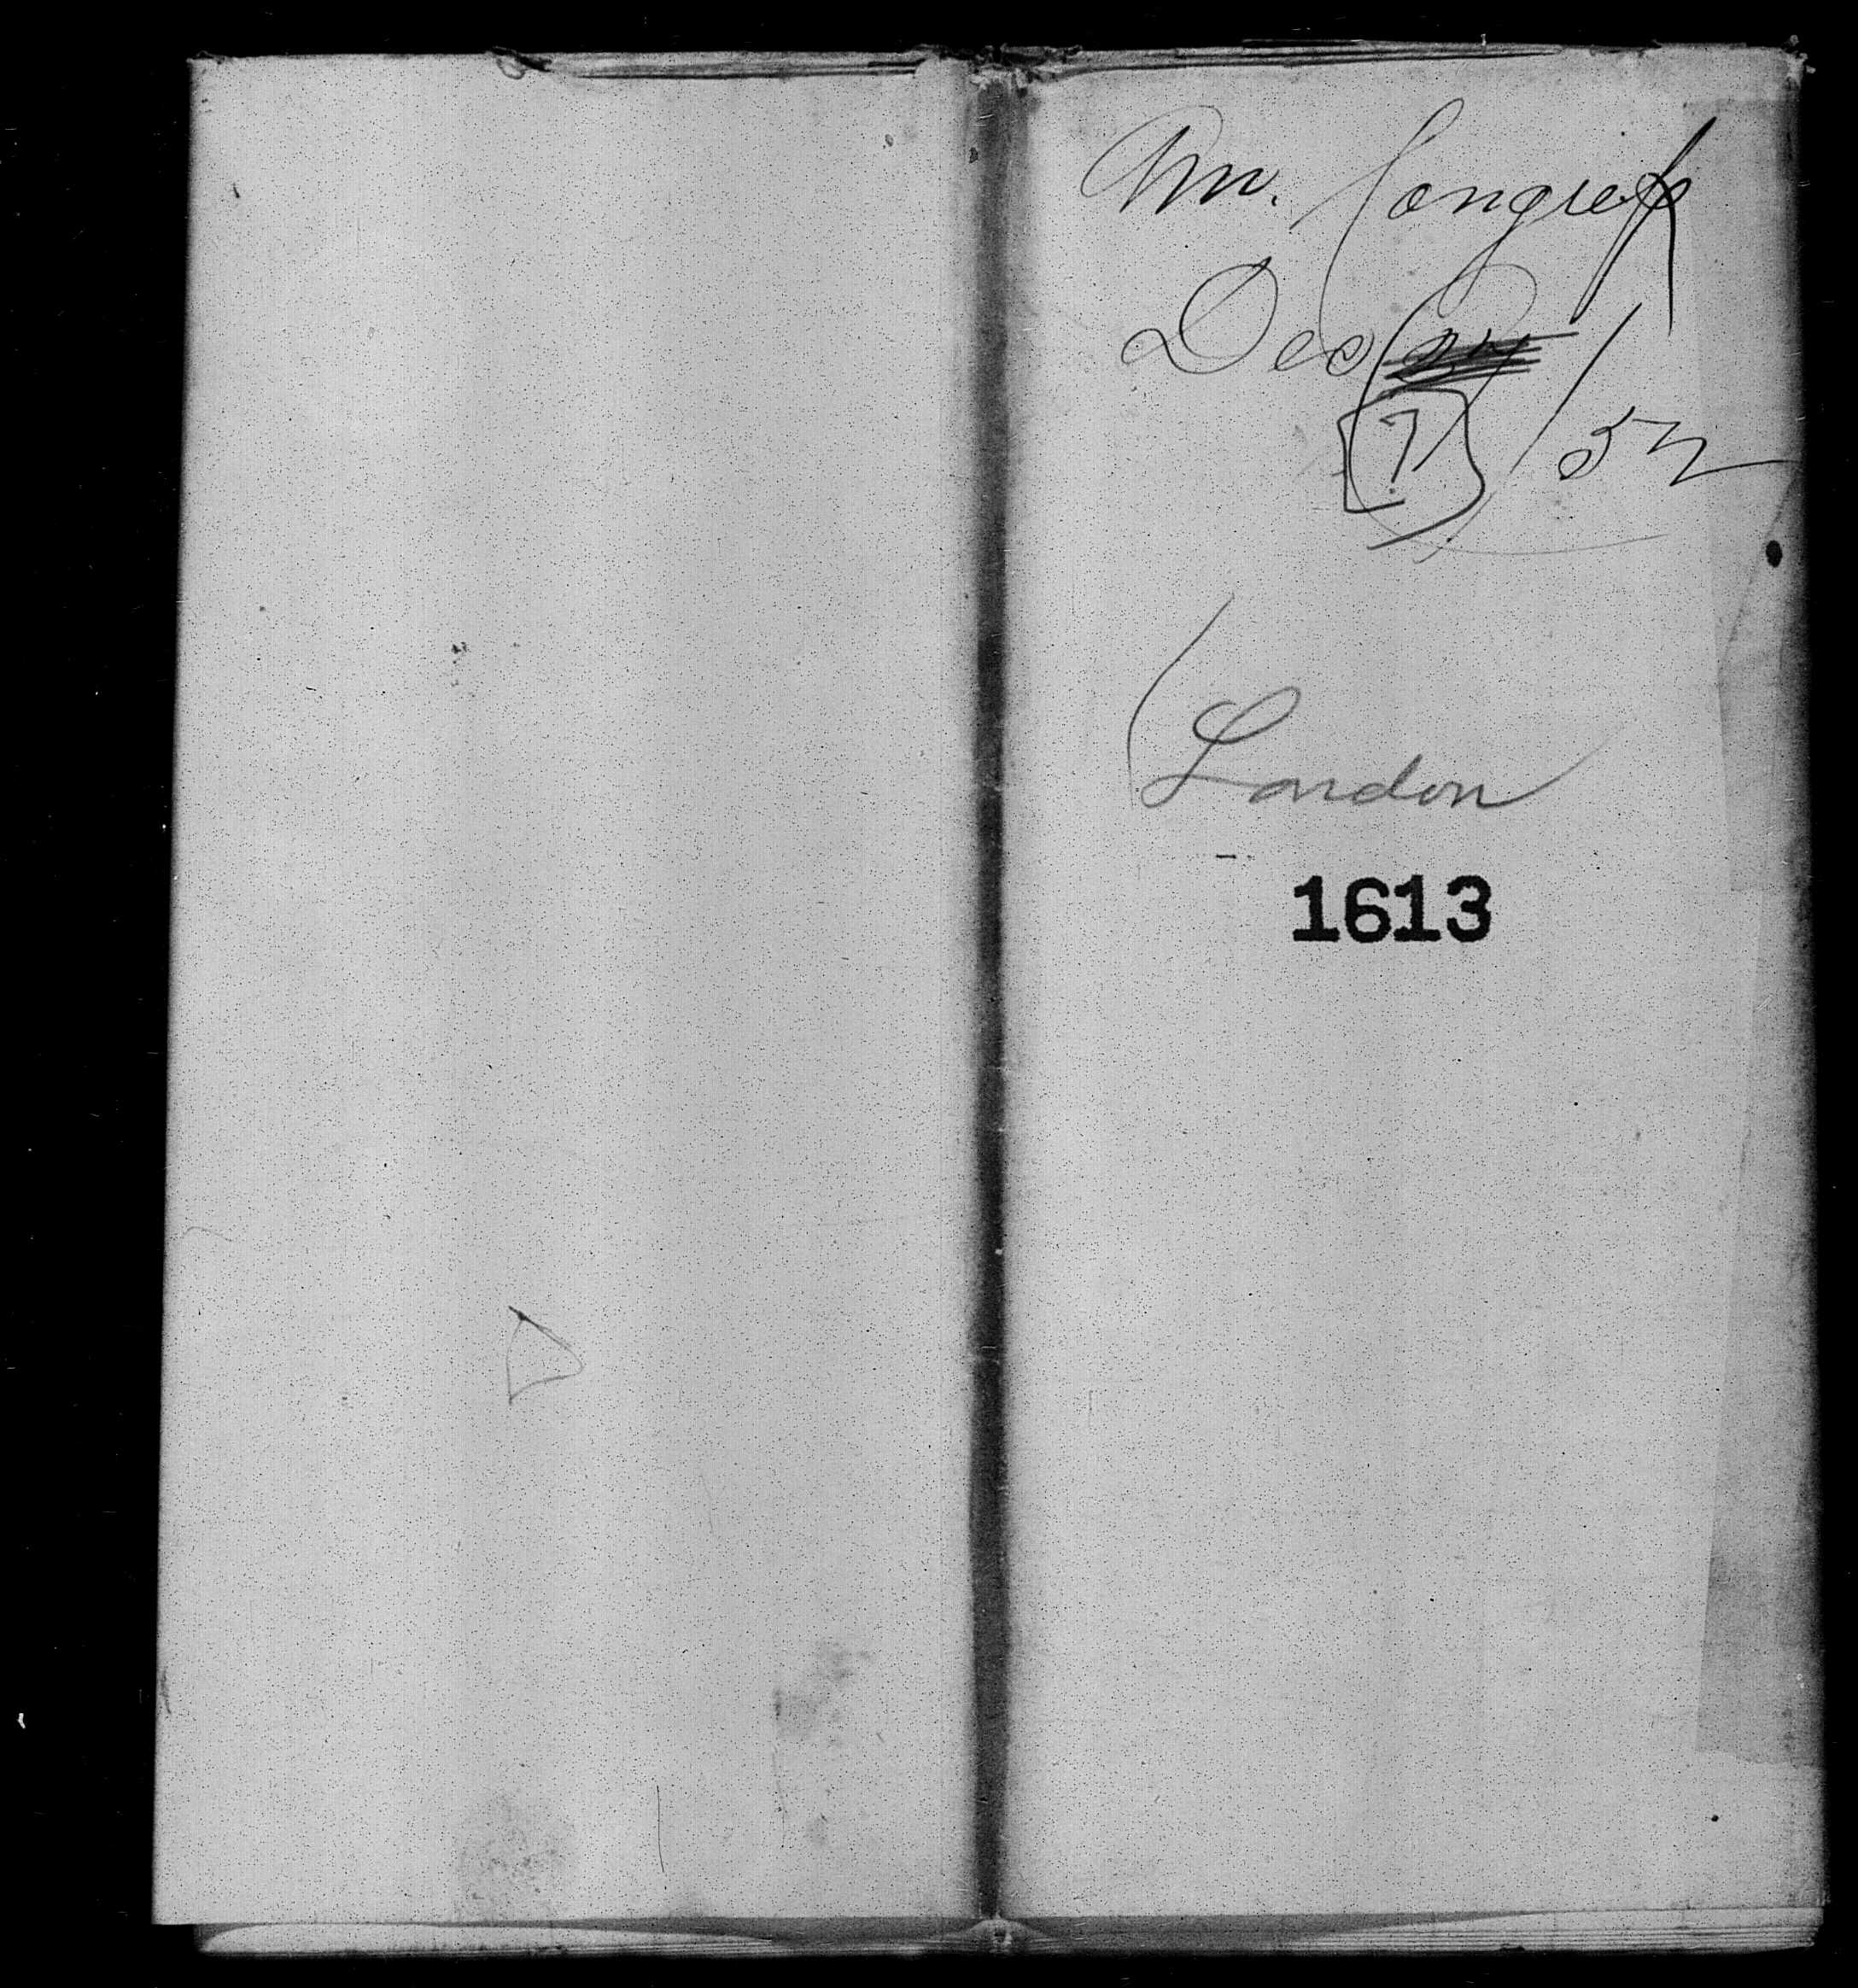 Wm. Congreff
Dec
[?] / 52
London
1613